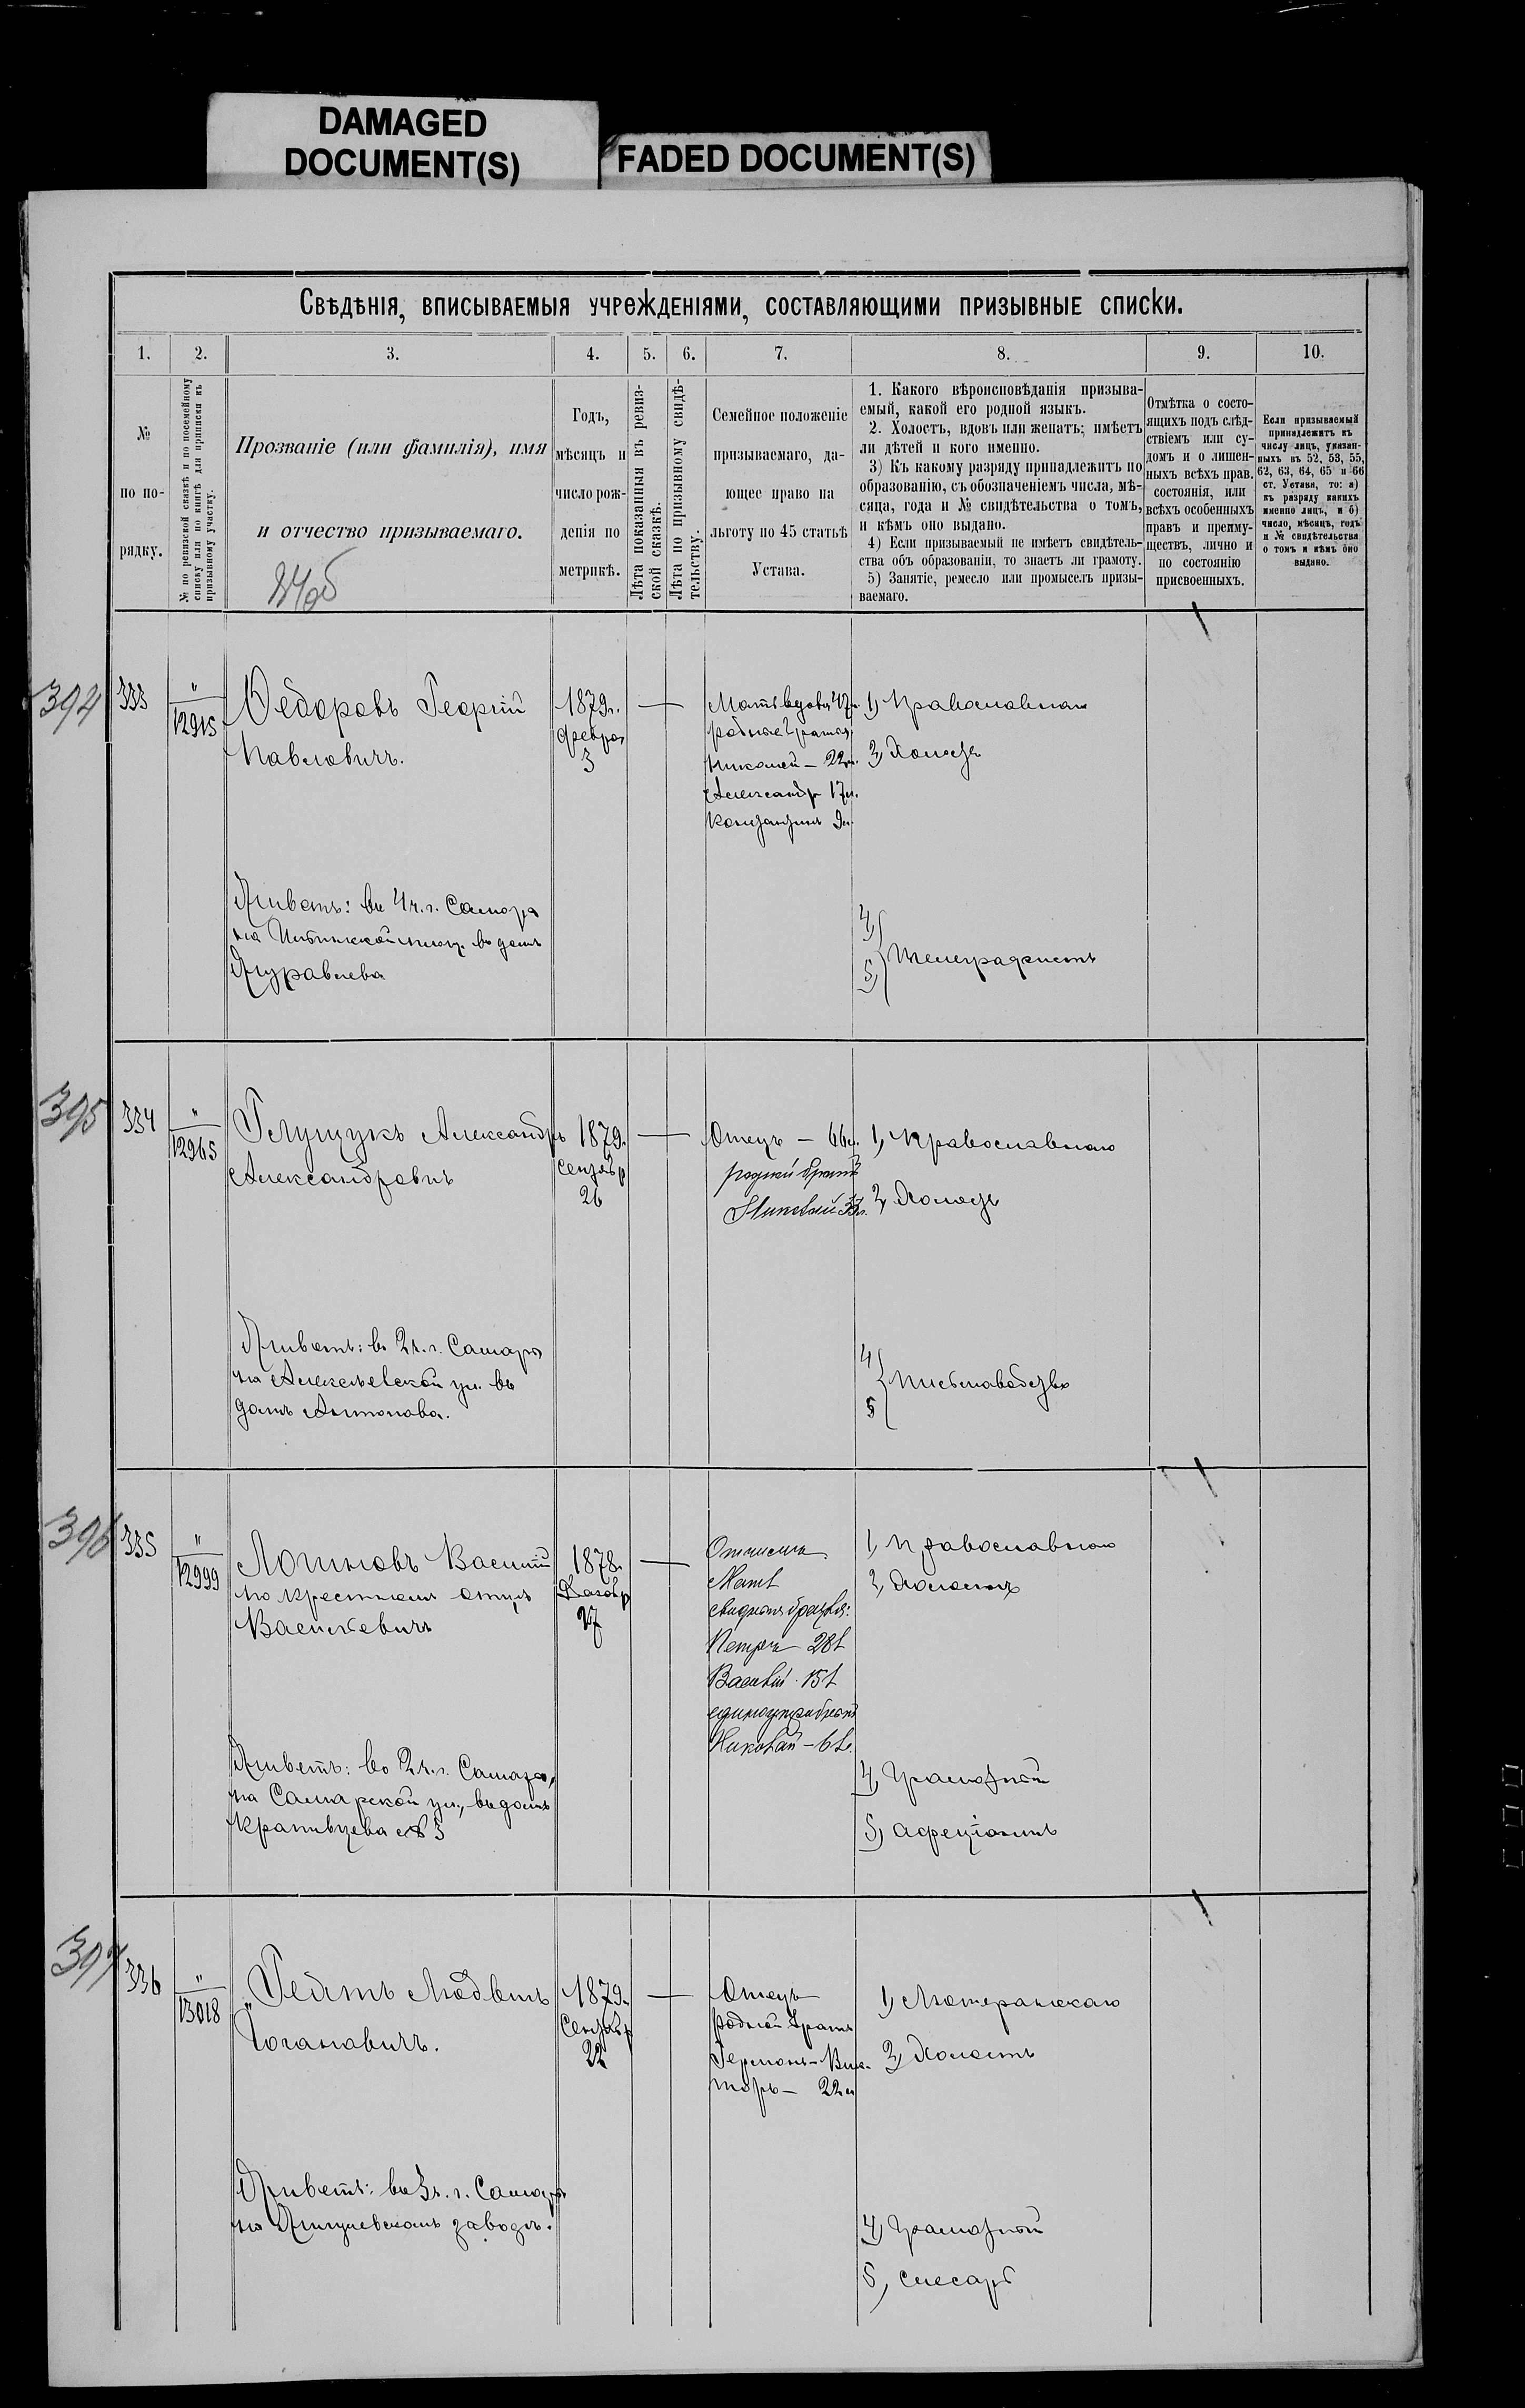 DAMAGED
DOCUMENT(S)
FADED DOCUMENT(S)
Свѣдѣнія, вписываемыя учрежденіями, составляющими призывные списки.
1.
2.
3.
4.
5.
6.
7.
8.
9.
10.
№
по по-
рядку.
№ по ревизской сказкѣ и по посемейному
списку или по книгѣ для приписки къ
призывному участку.
Прозваніе (или фамилія), имя
и отчество призываемаго.
Годъ,
мѣсяцъ и
число рож-
денія по
метрикѣ.
Лѣта показанныя въ ревиз-
ской сказкѣ.
Лѣта по призывному свидѣ-
тельству.
Семейное положеніе
призываемаго, да-
ющее право на
льготу по 45 статьѣ
Устава.
1. Какого вѣроисповѣданія призыва-
емый, какой его родной языкъ.
2. Холостъ, вдовъ или женатъ; имѣетъ
ли дѣтей и кого именно.
3) Къ какому разряду принадлежитъ по
образованію, съ обозначеніемъ числа, мѣ-
сяца, года и № свидѣтельства о томъ,
и кѣмъ оно выдано.
4) Если призываемый не имѣетъ свидѣтель-
ства объ образованіи, то знаетъ ли грамоту.
5) Занятіе, ремесло или промыселъ призы-
ваемаго.
Отмѣтка о состо-
ящихъ подъ слѣд-
ствіемъ или су-
домъ и о лишен-
ныхъ всѣхъ прав.
состоянія, или
всѣхъ особенныхъ
правъ и преиму-
ществъ, лично и
по состоянію
присвоенныхъ.
Если призываемый
принадлежитъ къ
числу лицъ, указан-
ныхъ въ 52, 53, 55,
62, 63, 64, 65 и 66
ст. Устава, то: а)
къ разряду какихъ
именно лицъ, и б)
число, мѣсяцъ, годъ
и № свидѣтельства
о томъ и кѣмъ оно
выдано.
394
333
"
12915
Ѳедоровъ Георгій
Павловичъ.
1879г.
Февра
3
Мать вдова 47л.
родные братья
Николай – 22л.
Александръ 17л.
Константинъ 9л.
1) Православнаго
2) Холостъ
Живетъ: въ 4ч. г. Самары
на площ. въ домѣ
Журавлева
4)
5)
Телеграфистъ
395
334
"
12965
Глущукъ Александръ
Александровичъ
1879.
Сентябр
26
Отецъ – 66л.
родной братъ
Николай 33л.
1) Православнаго
2) Холостъ
Живетъ: во 2ч. г. Самары
на Алексѣевской ул. въ
домѣ Антонова.
4
5
письмоводство
396
335
"
12999
Логиновъ Василій
по крестномъ отцѣ
Васильевичъ
1878.
27
Отчимъ
Мать
братья:
Петръ 28л
Василій 15л
единоутробный
Николай – 6л.
1) Православнаго
2) Холостъ
Живетъ: во 2ч. г. Самары,
на Самарской ул., въ домѣ
№ 3
4) Грамотной
5)
397
336
"
13018
Людвигъ
Іогановичъ.
1879.
Сентябр
22
Отецъ
родной братъ
Германъ-Вик-
торъ – 22л
1) Лютеранскаго
2) Холостъ
Живетъ: въ 3ч. г. Самары
на Жигулевскомъ заводѣ.
4) Грамотной
5) слесарь